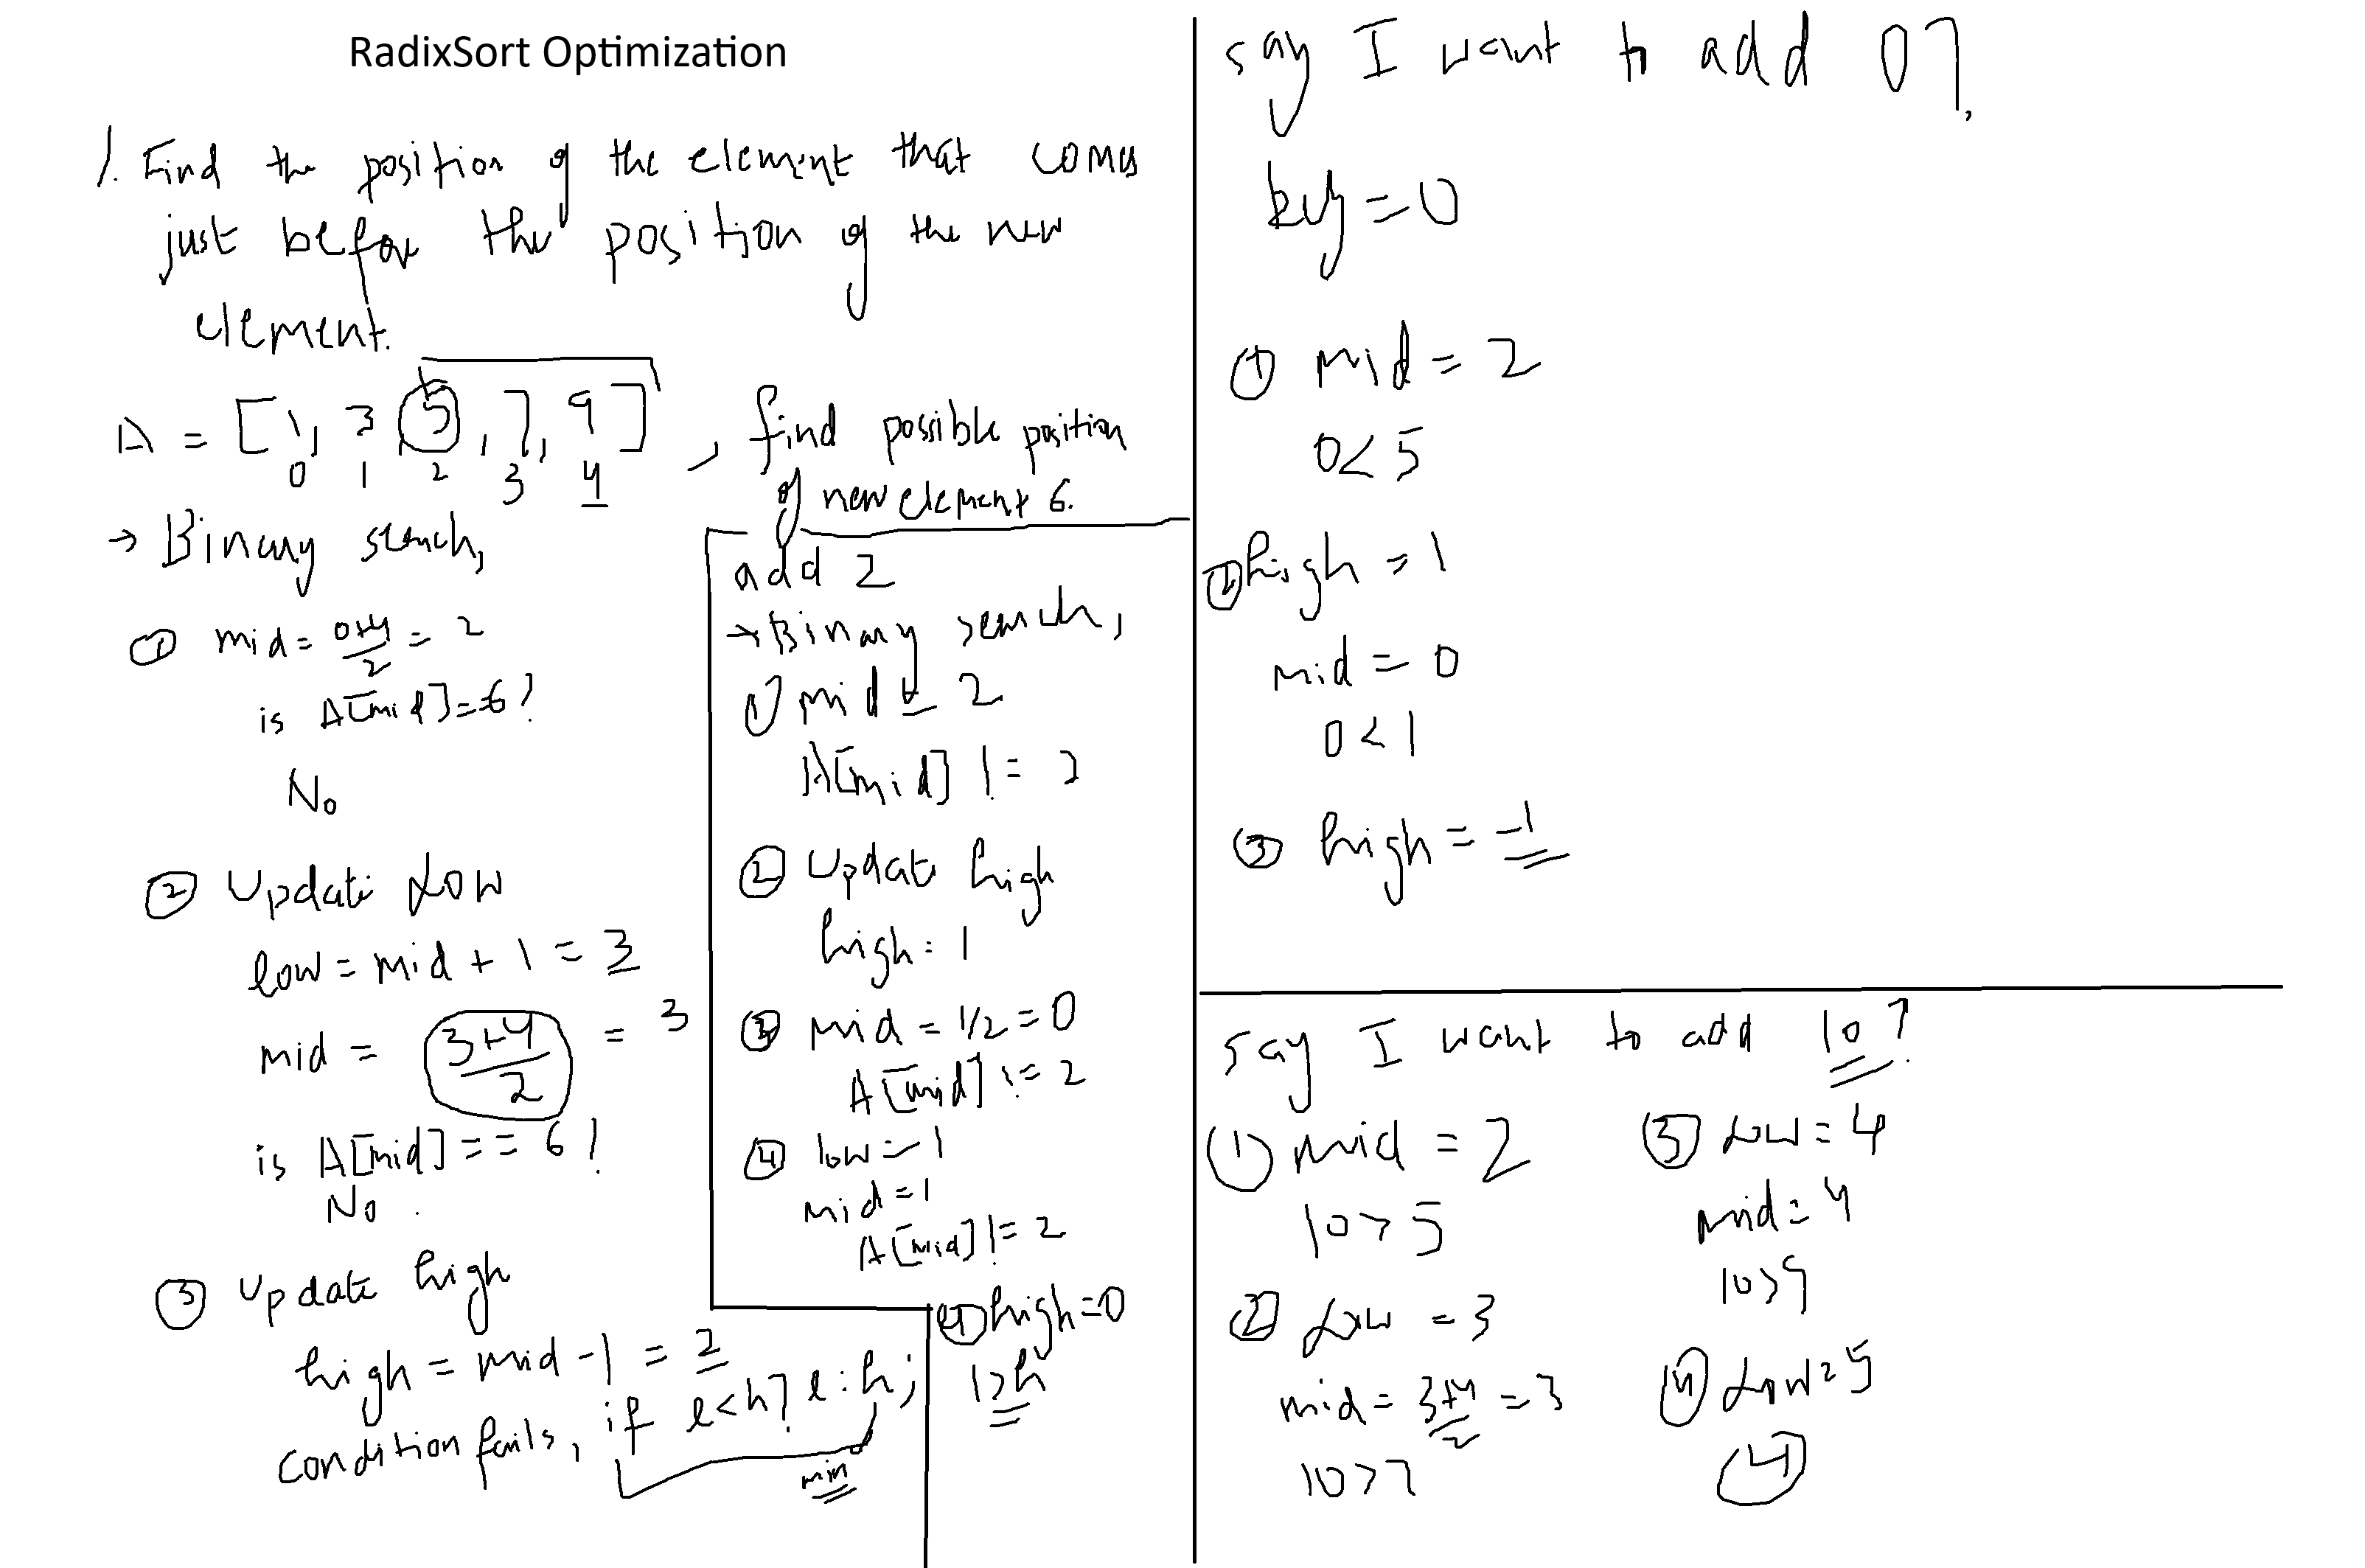 RadixSort Optimization
1. Find the position of the element that comes
just before the position of the new
element.
A = [1, 3, 5, 7, 9]
0 1 2 3 4
, find possible position
of new element 6.
→ Binary search,
① mid = 0+4/2 = 2
is A[mid]==6?
No
② Update Low
low = mid + 1 = 3
mid = 3+4/2 = 3
is A[mid] == 6?
No.
③ Update high
high = mid - 1 = 2
condition fails, if l<h? l:h;
min
add 2
→ Binary search,
① mid = 2
A[mid] != 2
② Update high
high = 1
③ mid = 1/2 = 0
A[mid] != 2
④ low = 1
mid = 1
A[mid] != 2
④ high = 0
l>h
say I want to add 0?
key = 0
① mid = 2
0<5
② high = 1
mid = 0
0<1
③ high = -1
say I want to add 10?
① mid = 2
10>5
② Low = 3
mid = 3+4/2 = 3
10>7
③ Low = 4
mid = 4
10>9
④ Low = 5
4